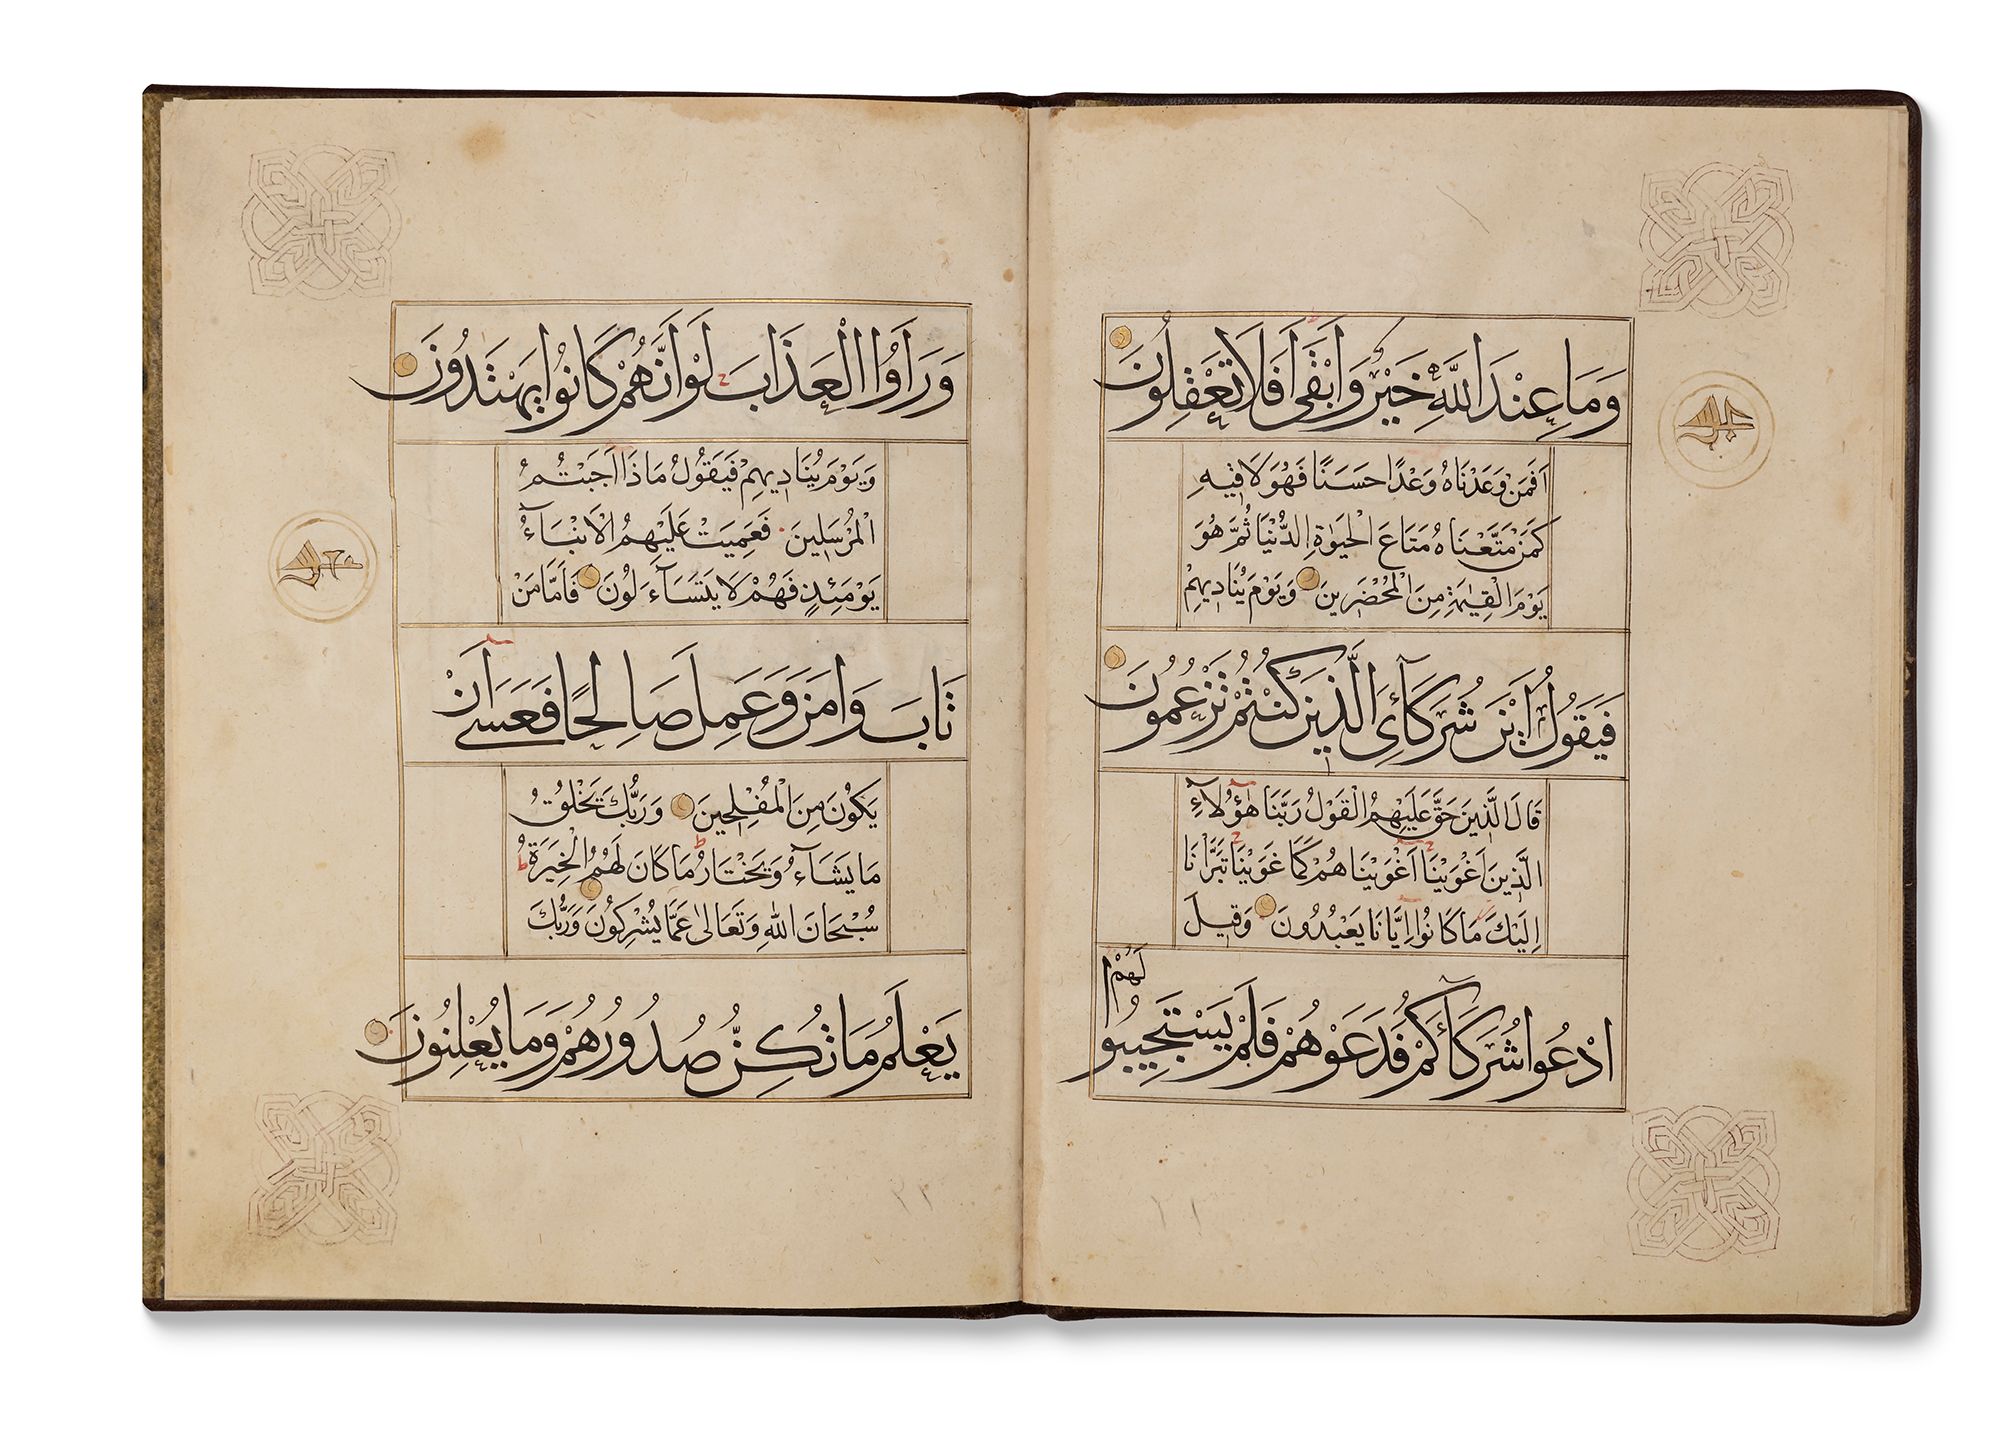 وَمَا عِنْدَ اللَّهِ خَيْرٌ وَأَبْقَى أَفَلَا تَعْقِلُونَ
اَفَمَنْ وَعَدْنَاهُ وَعْدًا حَسَنًا فَهُوَ لَاقِيهِ
كَمَنْ مَتَّعْنَاهُ مَتَاعَ الْحَيَوٰةِ الدُّنْيَا ثُمَّ هُوَ
يَوْمَ الْقِيٰمَةِ مِنَ الْمُحْضَرِينَ وَيَوْمَ يُنَادِيهِمْ
فَيَقُولُ اَيْنَ شُرَكَآئِىَ الَّذِينَ كُنْتُمْ تَزْعُمُونَ
قَالَ الَّذِينَ حَقَّ عَلَيْهِمُ الْقَوْلُ رَبَّنَا هٰؤُلَآءِ
الَّذِينَ اَغْوَيْنَا اَغْوَيْنَاهُمْ كَمَا غَوَيْنَا تَبَرَّاْنَا
اِلَيْكَ مَا كَانُوا اِيَّانَا يَعْبُدُونَ وَقِيلَ
ادْعُوا شُرَكَآءَكُمْ فَدَعَوْهُمْ فَلَمْ يَسْتَجِيبُوا لَهُمْ
وَرَاَوُا الْعَذَابَ لَوْ اَنَّهُمْ كَانُوا يَهْتَدُونَ
وَيَوْمَ يُنَادِيهِمْ فَيَقُولُ مَاذَا اَجَبْتُمُ
الْمُرْسَلِينَ فَعَمِيَتْ عَلَيْهِمُ الْاَنْبَآءُ
يَوْمَئِذٍ فَهُمْ لَا يَتَسَآءَلُونَ فَاَمَّا مَنْ
تَابَ وَاٰمَنَ وَعَمِلَ صَالِحًا فَعَسَى اَنْ
يَكُونَ مِنَ الْمُفْلِحِينَ وَرَبُّكَ يَخْلُقُ
مَا يَشَآءُ وَيَخْتَارُ مَا كَانَ لَهُمُ الْخِيَرَةُ
سُبْحَانَ اللّٰهِ وَتَعَالٰى عَمَّا يُشْرِكُونَ وَرَبُّكَ
يَعْلَمُ مَا تُكِنُّ صُدُورُهُمْ وَمَا يُعْلِنُونَ